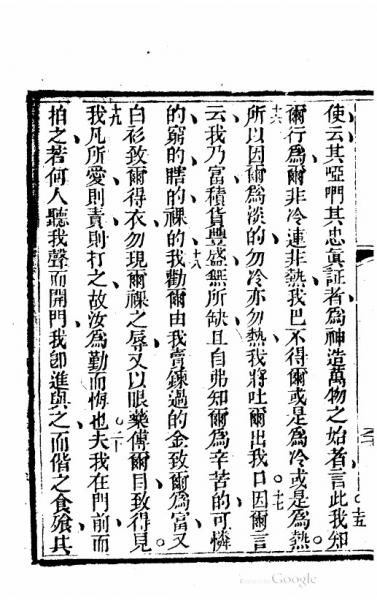 使云其啞哷其忠眞証者爲神造萬物之始者言此我知
十五
爾行爲爾非冷連非熱我巴不得爾或是爲冷或是爲熱
十六
所以因爾爲淡的勿冷亦勿熱我將吐爾出我口因爾言
十七
云我乃富積貨豐盛無所缺且自弗知爾爲辛苦的可憐
的窮的瞎的祼的我勸爾由我賣鍊過的金致爾爲富又
十八
白衫致爾得衣勿現爾祼之辱又以眼藥傅爾目致得見
我凡所愛則責則打之故汝爲勤而悔也夫我在門前而
十九
二十
拍之若何人聽我聲而開門我卽進與之而偕之食飱其
Google